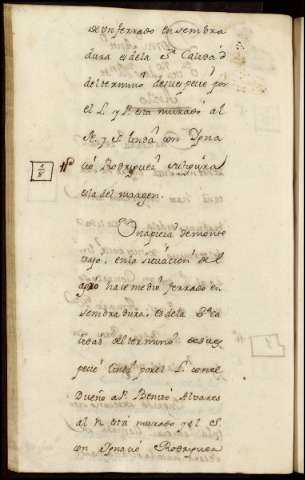 de un ferrado en sembra
dura es de la 3ª Calidad
del termino desu especie por
el L. y P. esta murado al
N. y S. linda con Igna
cio Rodriguez su figura
esta del margen.
Una pieza de monte
bajo, en la situacion de el
hace medio ferrado en
sembradura, es de la 3ª ca
lidad del termino desu es
pecie linda por el L. con el
Dueño a P. Benito Alvares
al N. esta murado y al S.
con Ignacio Rodriguez